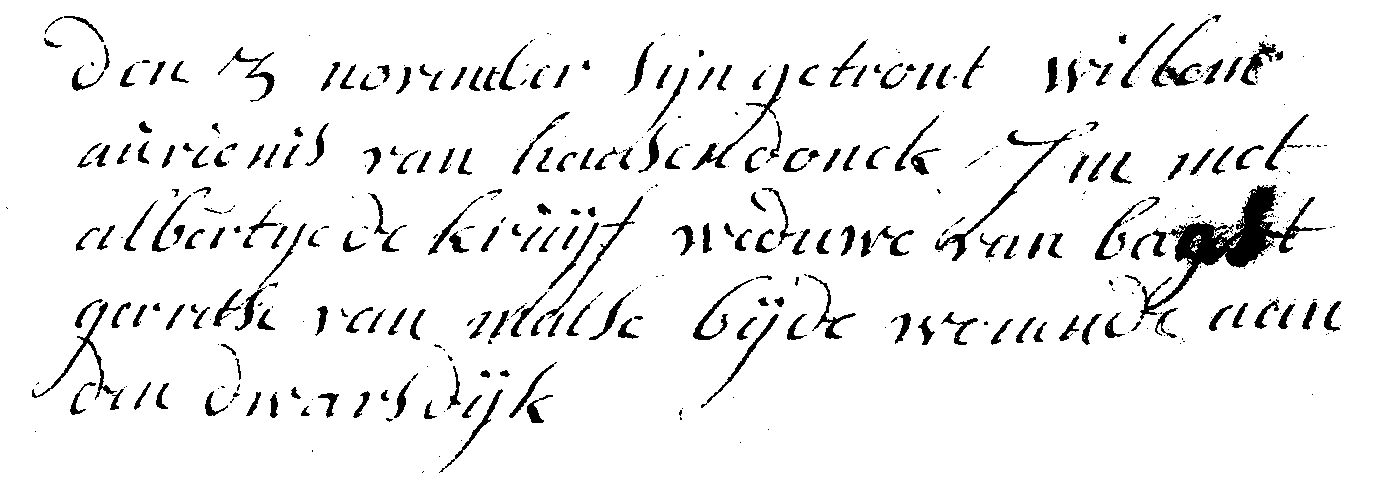 den 3 november sijn getrout willem
aurienis van haasendonck J m met
albertye de kruijf weduwe van
gerretse van malse bijde wonende aan
den dwarsdijk